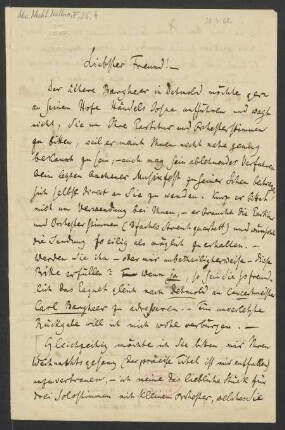 Liebster Freund! –
Der ältere Bargheer in Detmold möchte gern
an seinem Hofe Händels Josua aufführen und wagt
nicht, Sie um Ihre Partitur und Orchesterstimmen
zu bitten, weil er meint Ihnen nicht nahe genug
bekannt zu sein, – auch mag sein ablehnendes Verfahren
beim letzten Aachener Musikfest
selbst direkt an Sie zu wenden. Kurz er bittet
mich um Verwendung bei Ihnen, – er braucht die Partitur
und Orchesterstimmen (
die Sendung so eilig als möglich zu erhalten. –
Werden Sie ihm – oder mir
Bitte erfüllen? Wenn ja, so sein Sie so freund-
lich das Paquet gleich nach Detmold an Concertmeister
Carl Bargheer zu adressieren. – Für unverletzte
Rückgabe will ich mich wohl verbürgen. –
Gleichzeitig möchte ich Sie bitten mir Ihren
Weihnachtsgesang (der präcise Titel ist mir entfallen)
anzuvertrauen, – ich meine das liebliche Stück für
drei Solostimmen mit kleinem Orchester, welches Sie